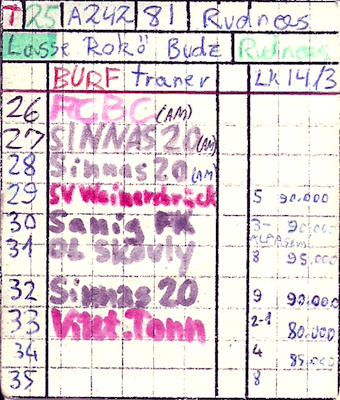 T 25 A242 81 Rudnees
Lasse Rokö Budz Rudness
BURF traner LK 14/3
26 FCBC (AM)
27 SINNAS 20 (AM)
28 Sinnas 20 (AM)
29 SV Weinersbrück 5 90.000
30 Sanig FK 3- 90.000
31 OL Skovly 8 95.000
32 Sinnas 20 9 90.000
33 Vint.Tonn 2-1 80.000
34 4 85.000
35 8